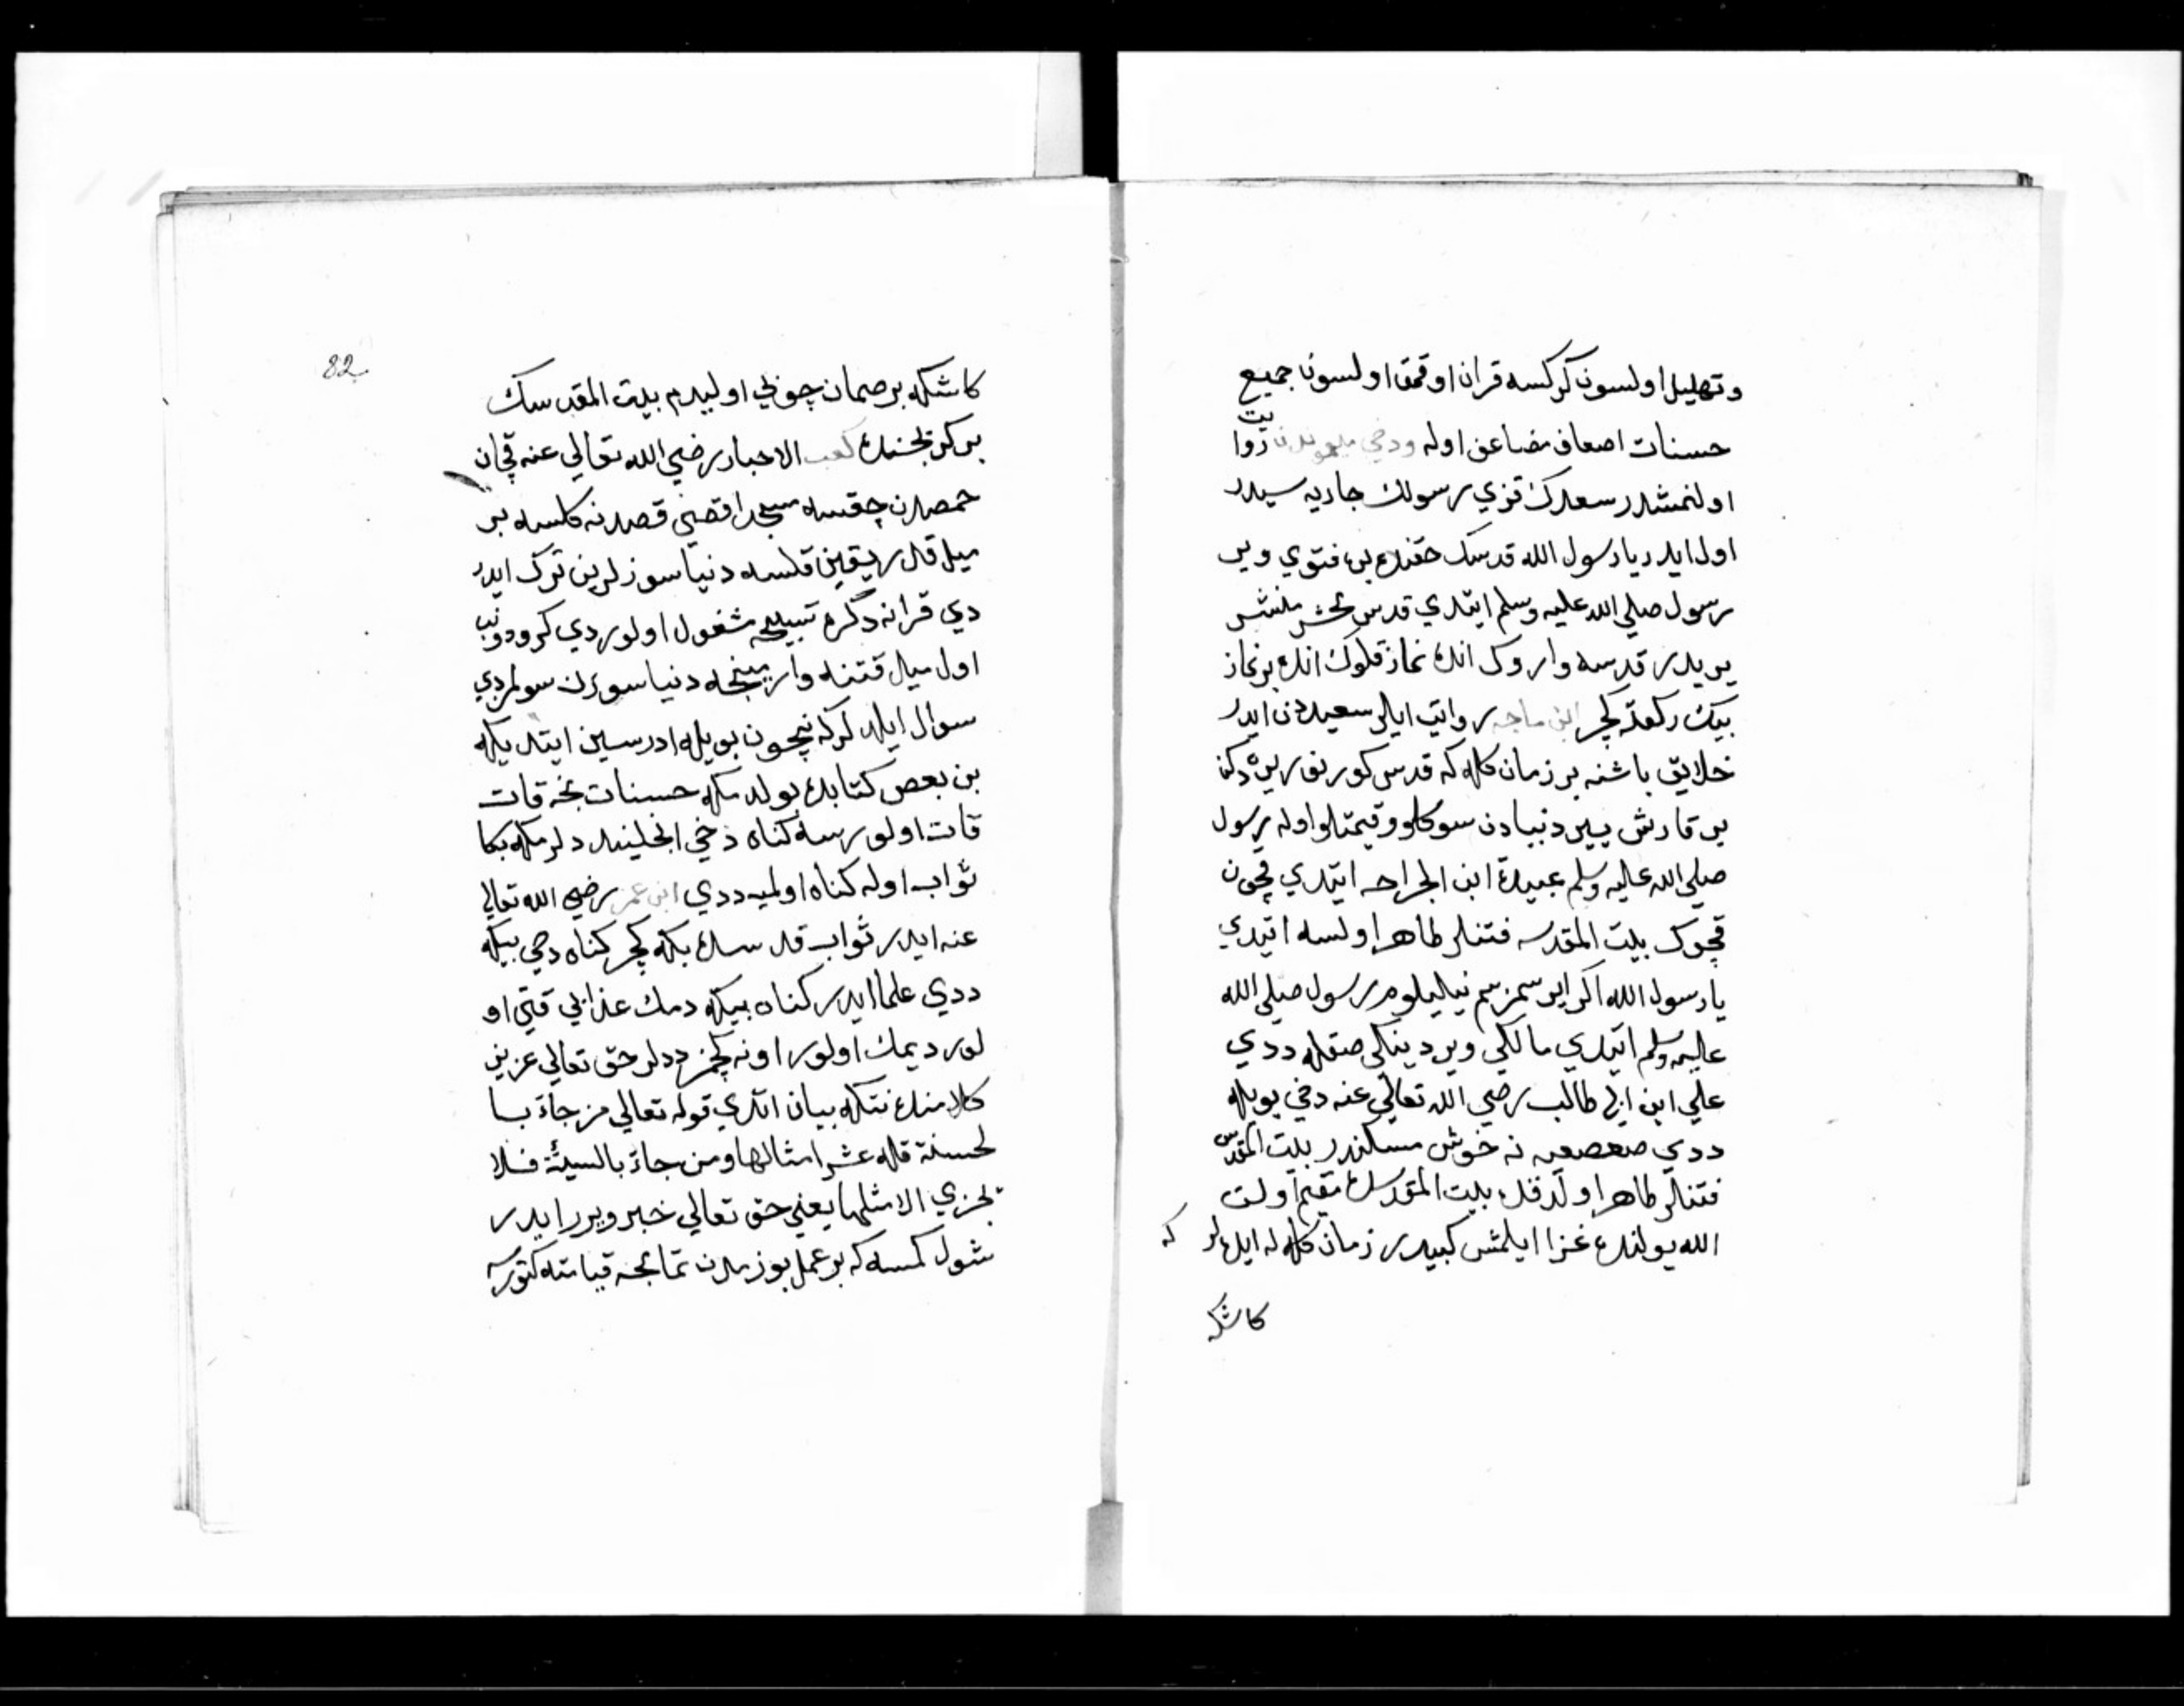 وتهليل اولسون كركسه قران اوقمق اولسون جميع
حسنات اضعاف مضاعف اوله ودخي ميمونه دن روايت
اولنمشدر سعدك قزي رسولك جاريه سيدر
اول ايدر يا رسول الله قدسك حقنده بزه فتوي وير
رسول صلي الله عليه وسلم ايتدي قدس محشر منشر
يريدر قدسه واروك انده نماز قلوك انده بر نماز
بيك ركعته كچر ابن ماجه روايت ايلر سعيددن ايدر
خلايق باشنه بر زمان كله كه قدس كورنور يرده دكن
بر قارش يير دنيادن سوكلو وقيمتلو اوله رسول
صلي الله عليه وسلم عبيدة ابن الجراحه ايتدي قچون
قچوك بيت المقدسه فتنلر ظاهر اولسه ايتدي
يا رسول الله اكر ايرسمزسم نيليلوم رسول صلي الله
عليه وسلم ايتدي مالكي وير دينكي صقله ددي
علي ابن ابي طالب رضي الله تعالي عنه دخي بويله
ددي صعصعه نه خوش مسكندر بيت المقدس
فتنلر ظاهر اولدقده بيت المقدسده مقيم اولت
الله يولنده غزا ايلمش كبيدر زمان كله له ايده لر كه
كاشكه
82
كاشكه بر صمان چوپي اوليدم بيت المقدسك
بر كرپجنده كعب الاحبار رضي الله تعالي عنه قچان
حمصدن چقسه مسجد اقصي قصدنه كلسه بر
ميل قدر يقين قلسه دنيا سوزلرين ترك ايدر
دي قرانه ذكره تسبيحه مشغول اولوردي كرو دونب
اول ميل قتنه وارمينجه دنيا سوزن سولمزدي
سوال ايلدلر كه نيچون بويله ادرسين ايتدي كه
بن بعض كتابده بولدمكه حسنات نجه قات
قات اولورسه كناه دخي انجلينددلر مكه بكا
ثواب اوله كناه اولميه ددي ابن عمر رضي الله تعالي
عنه ايدر ثواب قدسده بيكه كچر كناه دخي بيكه
ددي علما ايدر كناه بيكه دمك عذابي قتي او
لور ديمك اولور اونه كچمز ددلر حق تعالي عزيز
كلامنده نتكه بيان اتدي قوله تعالي من جاء با
لحسنة فله عشر امثالها ومن جاء بالسيئة فلا
يجزي الا مثلها يعني حق تعالي خبر ويرر ايدر
شول كمسه كه بر عمل بوزمدن تمامجه قيامته كتورسه